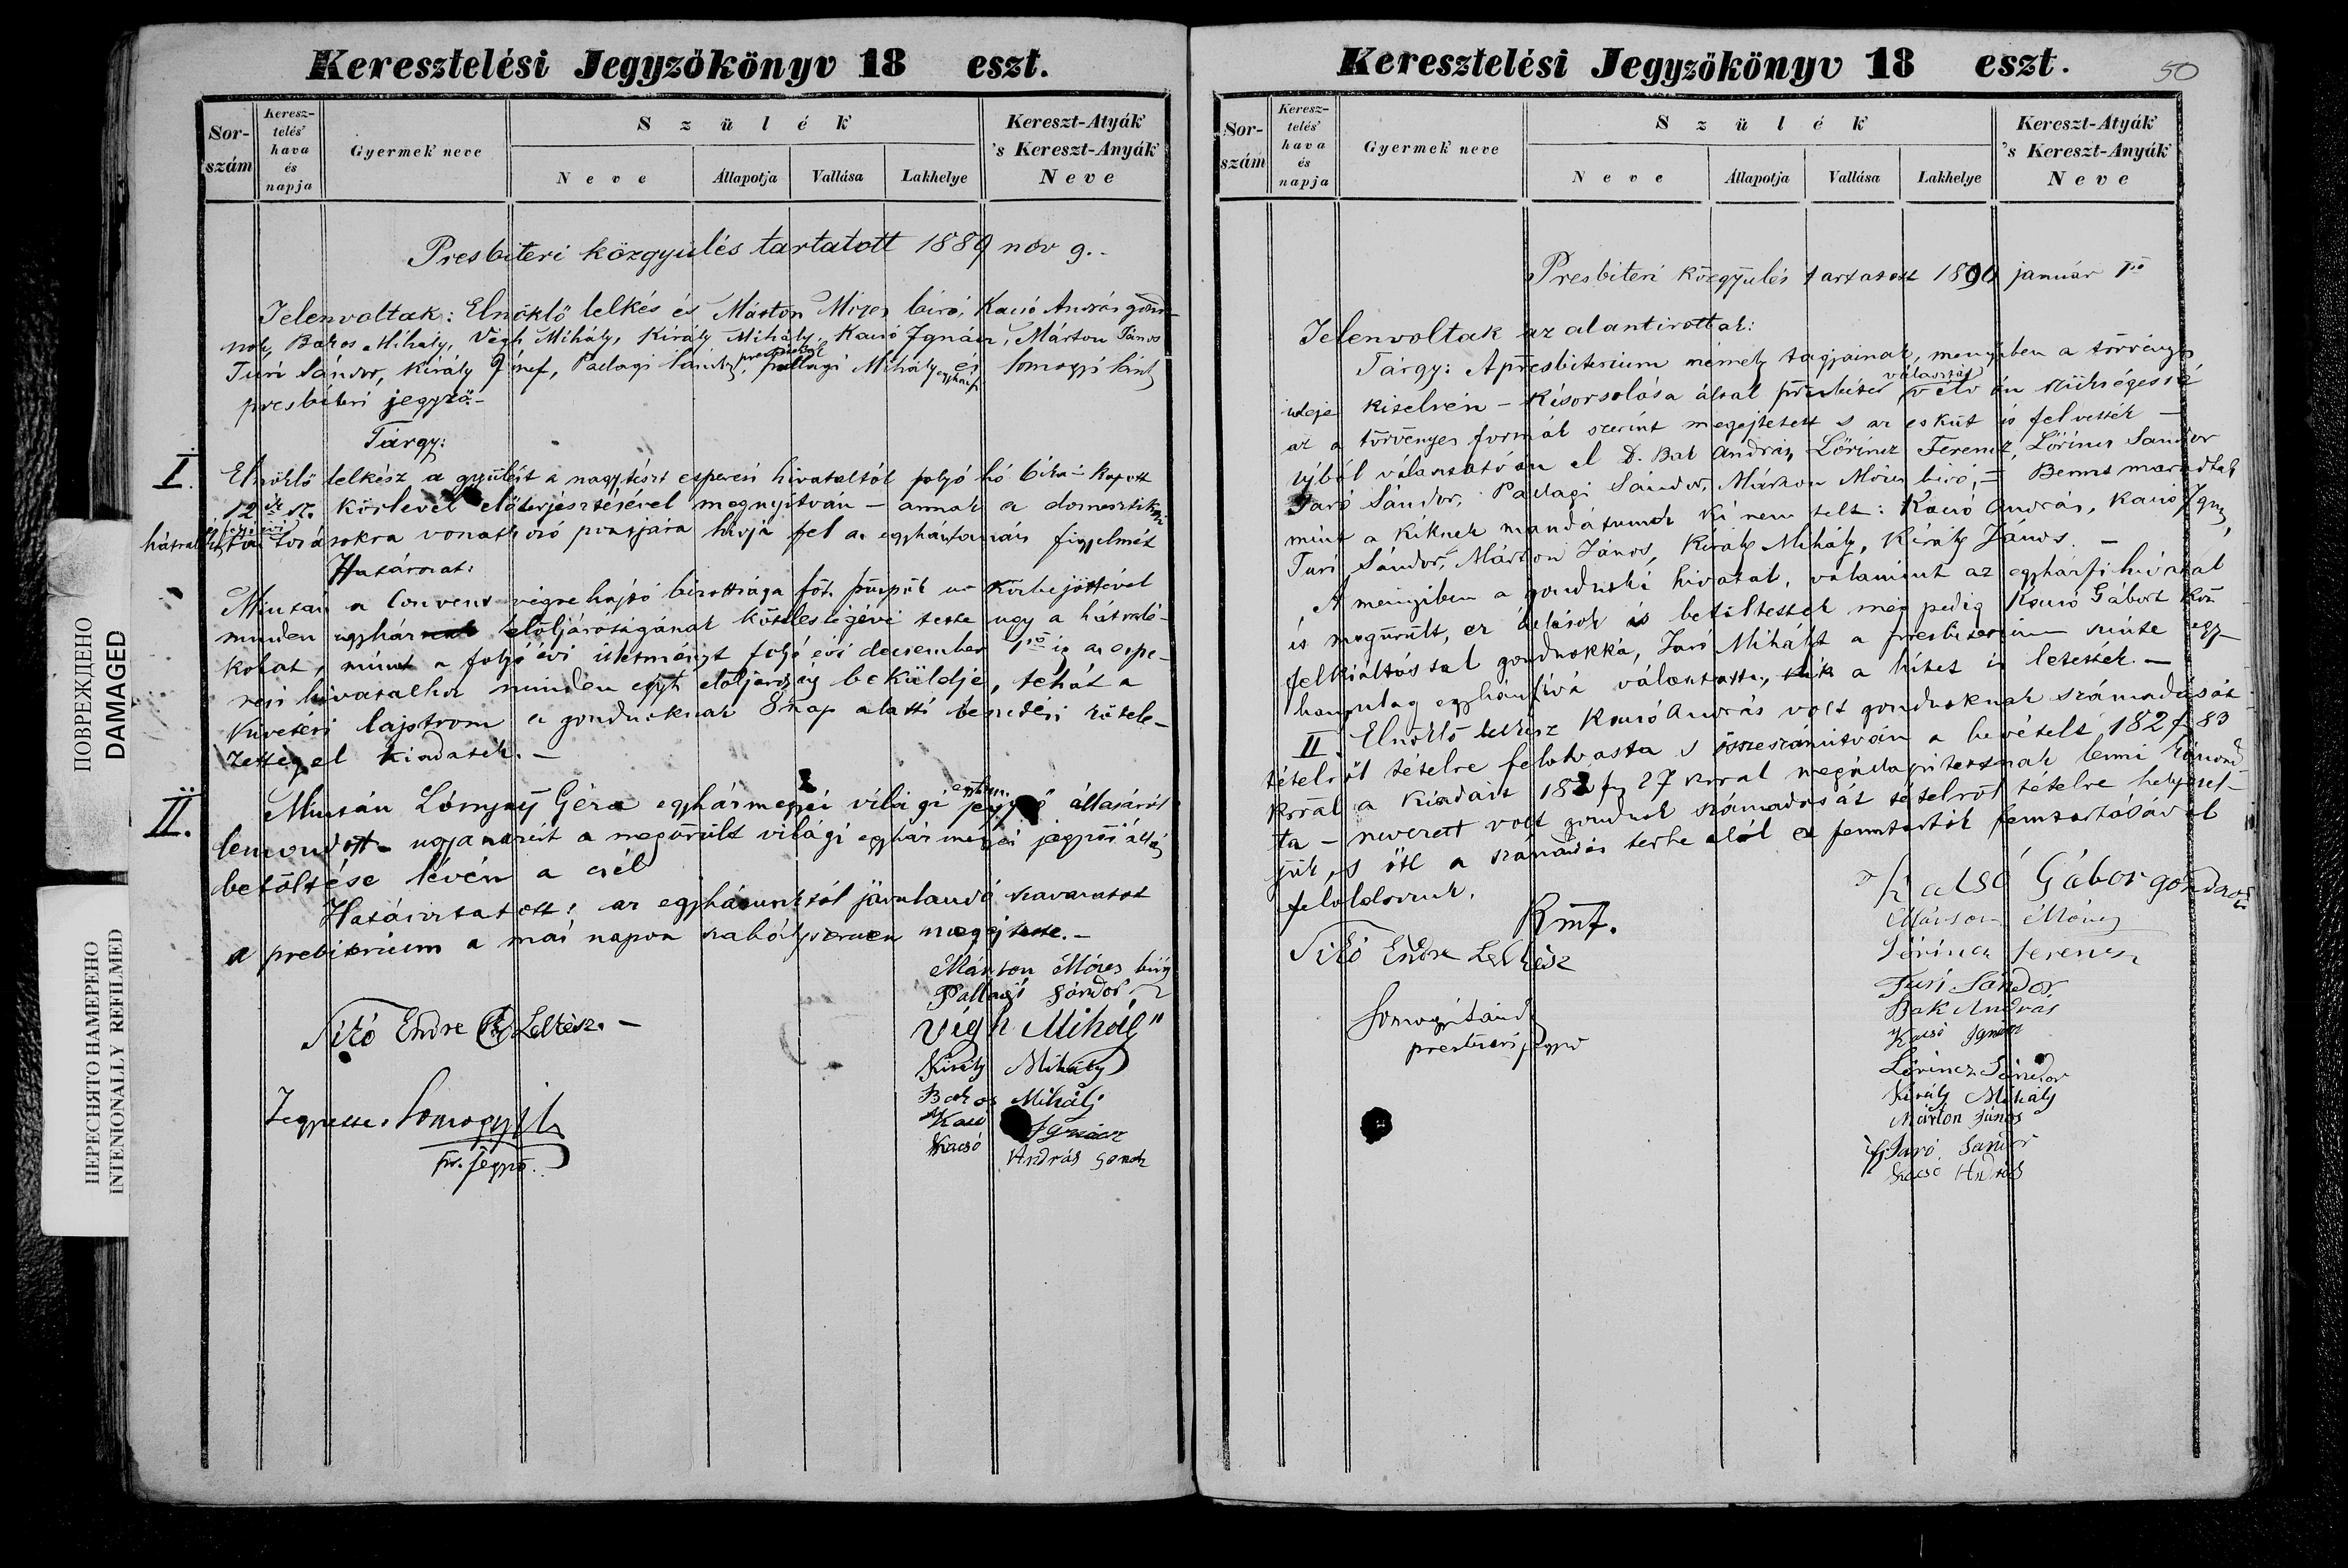 Keresztelési Jegyzőkönyv 18 eszt.
Sor-
szám
Keresz-
telés'
hava
és
napja
Gyermek neve
Szülék
Neve
Állapotja
Vallása
Lakhelye
Kereszt-Atyák
's Kereszt-Anyák
Neve
Presbiteri közgyülés tartatott 1889 nov 9.-
Jelenvoltak: Elnöklő lelkés és Márton Mózes biró, Kacsó András gond-
nok, Bakos Mihály, Végh Mihály, Király Mihály, Kacsó Ignácz, Márton János
Turi Sándor, Király József, Pallagi Sándor, presbiterek Pallagi Mihály egyházfi és Somogyi Sánd
presbiteri jegyző.-
Tárgy:
I. Elnöklő lelkész a gyülést a esperesi hivataltól folyó hó kapott
12 körlevél előterjesztésével megnyitván – annak a
vonatkozó pontjára hivja fel az egyháztanács figyelmét
Határozat:
Miután a Convent végrehajtó bizottsága főt. püspök ur
minden egyház elöljáróságának kötelességévé tette ugy a hátralé-
kokat, mint a folyó évi illetményt folyó évi december 1ső ig az espe-
resi hivatalhoz minden egyh elöljáróság beküldje, tehát a
kivetési lajstrom a gondnoknak 8 nap alatti beszedési kötele-
zettséggel kiadatik.-
II. Miután Lónyay Géza egyházmegyei világi állásáról
lemondott ugyanazért a megürült világi egyházmegyei jegyzői
betöltése lévén a czél
Határoztatott: az egyházunktól járulandó szavazatot
a prebitérium a mai napon szabályszerüen megejtette.-
Márton Mózes biró
Pallagi Sándor
Szikó Endre Lelkész.-
Végh Mihály
Király Mihály
Bakos Mihály
Jegyzette: Somogyi S
Kacsó Ignácz
pr. jegyző.
Kacsó András Gondk
Keresztelési Jegyzőkönyv 18 eszt.
50
Sor-
szám
Keresz-
telés'
hava
és
napja
Gyermek neve
Szülék
Neve
Állapotja
Vallása
Lakhelye
Kereszt-Atyák
's Kereszt-Anyák
Neve
Presbiteri közgyülés tartatott 1890 január
Jelenvoltak az alantirottak:
Tárgy: A presbiterium némely tagjainak, menyiben a törvényes
ideje kitelvén – kisorsolása által presbiter választás szükségessé
az a törvényes formák szerint megejtetett s az esküt is felvették –
ujból választatván el D. Bak András, Lőrincz Ferencz, Lőrincz Sandor
Jaró Sándor, Pallagi Sándor, Márton Mózes biró, – Bennt maradtak
mint a kiknek mandátumok ki nem telt: Kacsó András, Kacsó Ignác,
Turi Sándor, Márton János, Király Mihály, Király János. –
A menyiben a gondnoki hivatal, valamint az egyházfi hivatal
is megürült, ez állások is betöltettek még pedig Kacsó Gábort köz
felkiáltással gondnokká, Jaró Mihályt a presbiterium szinte egy-
hangulag egyházfivá választotta, kik a hitet is letették.–
II. Elnöklő lelkész Kacsó András volt gondnoknak számadását
tételről tételre felolvasta s összeszámitván a bevételt 182 f 83
krral a kiadást 182 f 27 krral megállapitottnak lenni kimond-
ta – nevezett volt gondnok számadását tételről tételre helyesel-
jük, s őtt a számadás terhe alól fenntartásával
feloldozzuk.
Kmf.
Szikó Endre Lelkész
Kacsó Gábor gondnok
Márton Mózes
Lőrincz Ferencz
Turi Sándor
Somogyi Sánd
Bak András
presbiteri jegyző
Kacsó Ignácz
Lőrincz Sándor
Király Mihály
Márton János
Jaró Sandor
Kacsó András
ПОВРЕЖДЕНО
DAMAGED
ПЕРЕСНЯТО НАМЕРЕНО
INTENIONALLY REFILMED